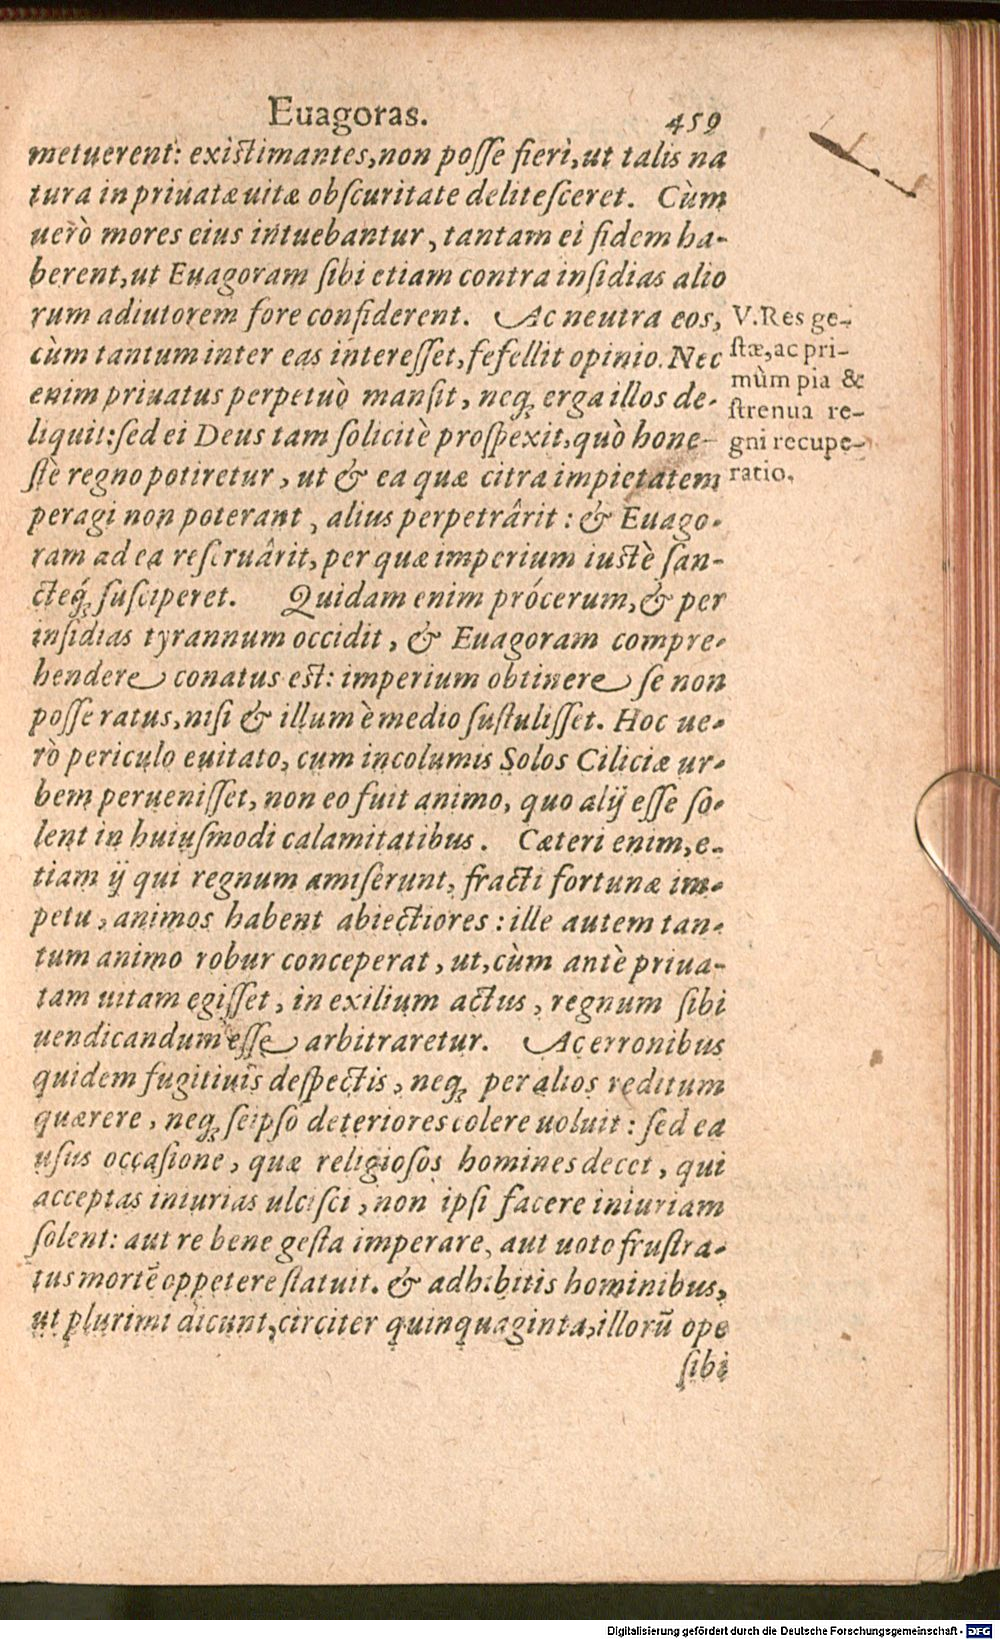 Euagoras. 459
metuerent: existimantes, non posse fieri, ut talis na
tura in priuatæ uitæ obscuritate delitesceret. Cùm
uerò mores eius intuebantur, tantam ei fidem ha-
berent, ut Euagoram sibi etiam contra insidias alio
rum adiutorem fore confiderent. Ac neutra eos,
cùm tantum inter eas interesset, fefellit opinio. Nec
enim priuatus perpetuò mansit, neq; erga illos de-
liquit: sed ei Deus tam solicitè prospexit, quò hone-
stè regno potiretur, ut & ea quæ citra impietatem
peragi non poterant, alius perpetrârit: & Euago-
ram ad ea reseruârit, per quæ imperium iustè san-
cteq́; susciperet. Quidam enim prócerum, & per
insidias tyrannum occidit, & Euagoram compre-
hendere conatus est: imperium obtinere se non
posse ratus, nisi & illum è medio sustulisset. Hoc ue-
rò periculo euitato, cum incolumis Solos Ciliciæ ur-
bem peruenisset, non eo fuit animo, quo alij esse so-
lent in huiusmodi calamitatibus. Cæteri enim, e-
tiam ij qui regnum amiserunt, fracti fortunæ im-
petu, animos habent abiectiores: ille autem tan-
tum animo robur conceperat, ut, cùm antè priua-
tam uitam egisset, in exilium actus, regnum sibi
uendicandum esse arbitraretur. Ac erronibus
quidem fugitiuis despectis, neq; per alios reditum
quærere, neq; seipso deteriores colere uoluit: sed ea
usus occasione, quæ religiosos homines decet, qui
acceptas iniurias ulcisci, non ipsi facere iniuriam
solent: aut re bene gesta imperare, aut uoto frustra-
tus mortē oppetere statuit. & adhibitis hominibus,
ut plurimi dicunt, circiter quinquaginta, illorū ope
sibi
V. Res ge-
stæ, ac pri-
mùm pia &
strenua re-
gni recupe-
ratio.
Digitalisierung gefördert durch die Deutsche Forschungsgemeinschaft - DFG